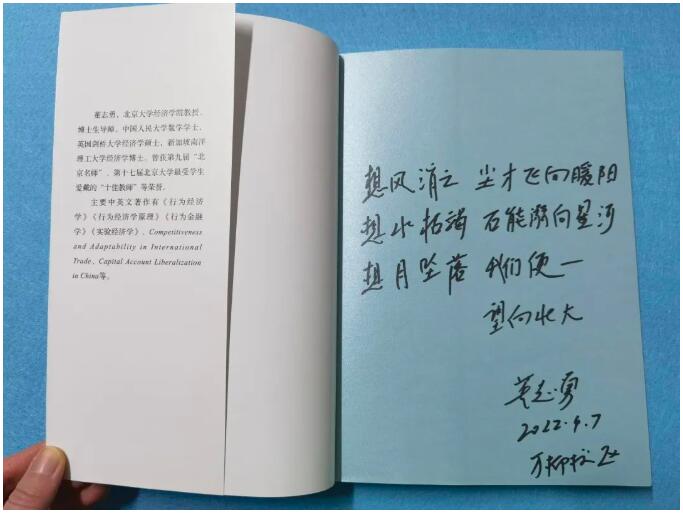 董志勇，北京大学经济学院教授、
博士生导师，中国人民大学数学学士、
英国剑桥大学经济学硕士，新加坡南洋
理工大学经济学博士。曾获第九届“北
京名师”、第十七届北京大学最受学生
爱戴的“十佳教师”等荣誉。
主要中英文著作有《行为经济
学》《行为经济学原理》《行为金融
学》《实验经济学》、Competitiveness
and Adaptability in International
Trade、Capital Account Liberalization
in China等。
想风 尘才飞向暖阳
想水 石能溯向星河
想月坠落 我们便一
望向北大
董志勇
万柳校区